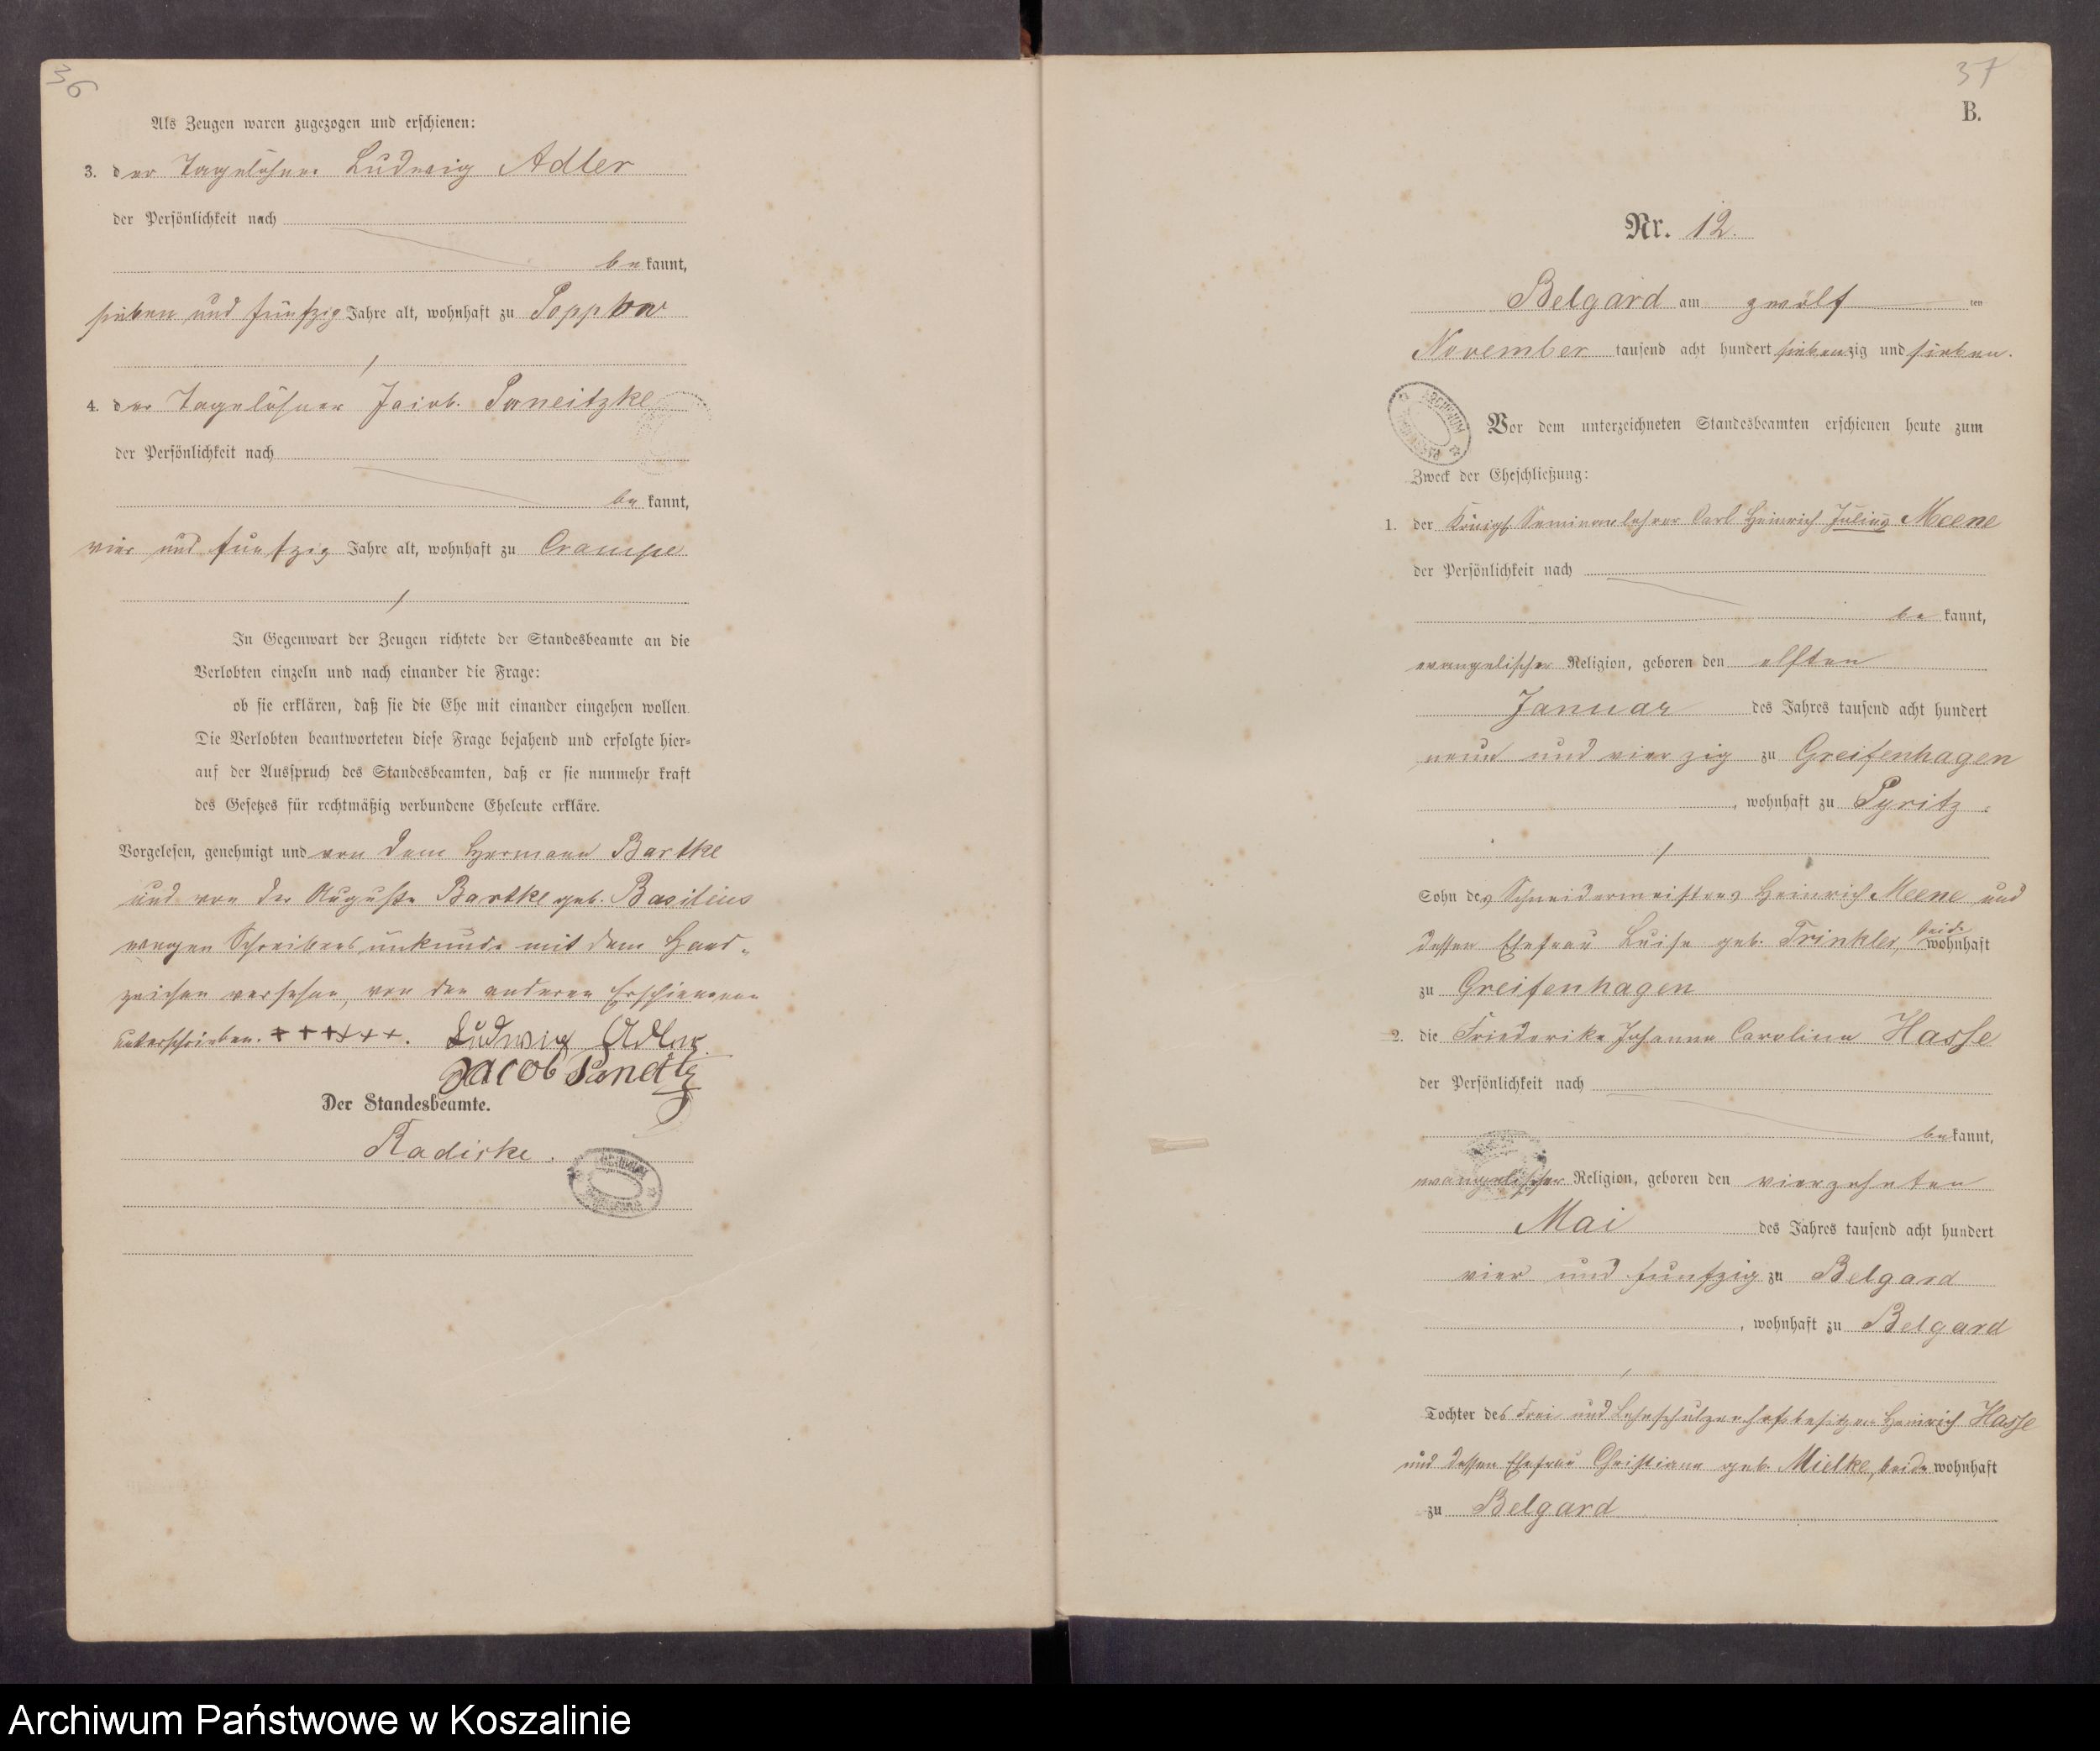 36
Als Zeugen waren zugezogen und erschienen:
3. der Tagelöhner Ludwig Adler
der Persönlichkeit nach
be kannt,
sieben und fünfzig Jahre alt, wohnhaft zu Poppow
4. der Tagelöhner Jacob Paneitzke
der Persönlichkeit nach
be kannt,
vier und funfzig Jahre alt, wohnhaft zu Crampe
In Gegenwart der Zeugen richtete der Standesbeamte an die
Verlobten einzeln und nach einander die Frage:
ob sie erklären, daß sie die Ehe mit einander eingehen wollen.
Die Verlobten beantworteten diese Frage bejahend und erfolgte hier=
auf der Ausspruch des Standesbeamten, daß er sie nunmehr kraft
des Gesetzes für rechtmäßig verbundene Eheleute erkläre.
Vorgelesen, genehmigt und von dem Hermann Bartke
und von der Auguste Bartke geb. Basilius
wegen Schreibensunkunde mit dem Hand-
zeichen versehen, von den anderen Erschienenen
unterschrieben. + + + + + +. Ludwig Adler.
Jacob
Der Standesbeamte.
Radicke.
37
B.
Nr. 12.
Belgard am zwölf ten
November tausend acht hundert siebenzig und sieben.
ARCHIWUM
Vor dem unterzeichneten Standesbeamten erschienen heute zum
Zweck der Eheschließung:
1. der Königl. Seminarlehrer Carl Heinrich Julius Meene
der Persönlichkeit nach
be kannt,
evangelischer Religion, geboren den elften
Januar des Jahres tausend acht hundert
neun und vierzig zu Greifenhagen
, wohnhaft zu Pyritz.
Sohn des Schneidermeisters Heinrich Meene und
dessen Ehefrau Luise geb. Trinkler, beide wohnhaft
zu Greifenhagen
2. die Friederike Johanna Caroline Hasse
der Persönlichkeit nach
be kannt,
evangelischer Religion, geboren den vierzehnten
Mai des Jahres tausend acht hundert
vier und funfzig zu Belgard
, wohnhaft zu Belgard
Tochter des Frei- und Lehnschulzenhofsbesitzers Heinrich Hasse
und dessen Ehefrau Christiane geb. Mielke, beide wohnhaft
zu Belgard
Archiwum Państwowe w Koszalinie